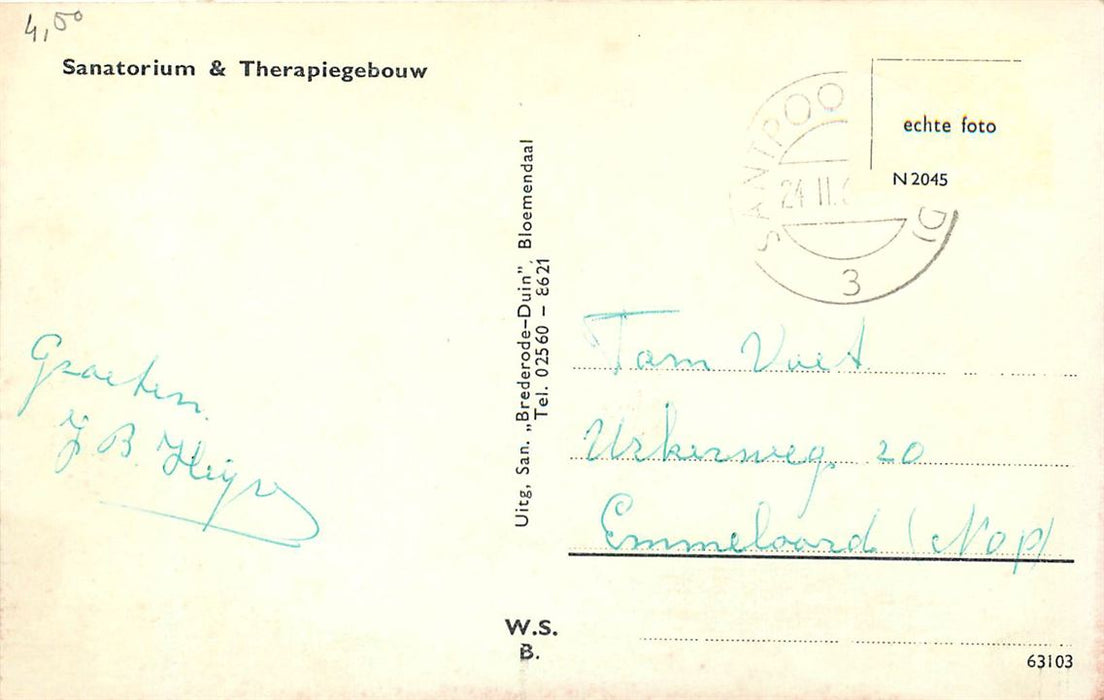 4,50
Sanatorium & Therapiegebouw
echte foto
N 2045
SANTPOO
24 II.6
3
Uitg, San. „Brederode-Duin”, Bloemendaal
Tel. 02560 - 8621
Groeten.
J B. Heijn
Tom Voet
Urkerweg 20
Emmeloord (Nop)
W.S.
B.
63103